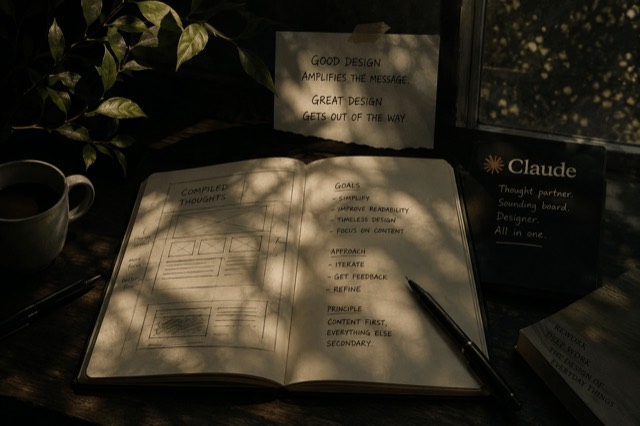 GOOD DESIGN
AMPLIFIES THE MESSAGE.
GREAT DESIGN
GETS OUT OF THE WAY.
COMPILED
THOUGHTS
GOALS
- SIMPLIFY
- IMPROVE READABILITY
- TIMELESS DESIGN
- FOCUS ON CONTENT
APPROACH
- ITERATE
- GET FEEDBACK
- REFINE
PRINCIPLE
CONTENT FIRST,
EVERYTHING ELSE
SECONDARY.
Claude
Thought partner.
Sounding board.
Designer.
All in one.
REWORK
THE DESIGN OF
EVERYDAY THINGS